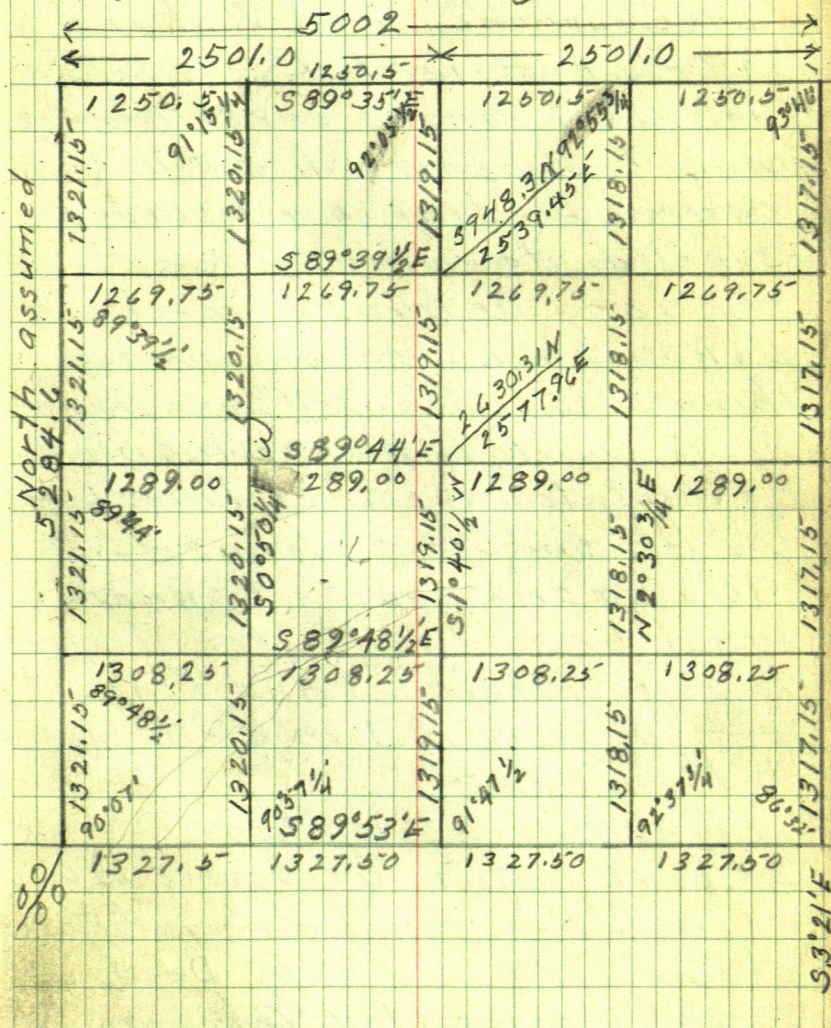 5002
2501.0 2501.0
1250.5
1250.5 S89°35'E 1250.5 1250.5
91°15 1/4 92°05 1/2 92°55 3/4 93°46'
North assumed
5284.6
1321.15 1320.15 1319.15 1318.15 1317.15
3948.3N
2539.45E
S89°39½'E
1269.75 1269.75 1269.75 1269.75
89°39½'
1321.15 1320.15 1319.15 1318.15 1317.15
2630.31N
2577.96E
S89°44'E
1289.00 1289.00 1289.00 1289.00
89°44'
1321.15 1320.15 1319.15 1318.15 1317.15
S0°50¼ W
S.1°40½ W
N 2°30¾ E
S89°48½E
1308.25 1308.25 1308.25 1308.25
89°48½'
1321.15 1320.15 1319.15 1318.15 1317.15
90°07' 90°57¼ 91°47½ 92°37¾ 86°32'
S89°53'E
1327.5 1327.50 1327.50 1327.50
00/00
S3°21'E